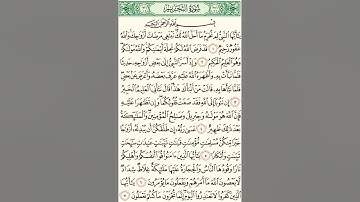 سُورَةُ التَّحْرِيمِ
بِسْمِ اللَّهِ الرَّحْمَٰنِ الرَّحِيمِ
يَا أَيُّهَا النَّبِيُّ لِمَ تُحَرِّمُ مَا أَحَلَّ اللَّهُ لَكَ تَبْتَغِي مَرْضَاتَ أَزْوَاجِكَ وَاللَّهُ
غَفُورٌ رَحِيمٌ ١ قَدْ فَرَضَ اللَّهُ لَكُمْ تَحِلَّةَ أَيْمَانِكُمْ وَاللَّهُ مَوْلَاكُمْ
وَهُوَ الْعَلِيمُ الْحَكِيمُ ٢ وَإِذْ أَسَرَّ النَّبِيُّ إِلَىٰ بَعْضِ أَزْوَاجِهِ حَدِيثًا
فَلَمَّا نَبَّأَتْ بِهِ وَأَظْهَرَهُ اللَّهُ عَلَيْهِ عَرَّفَ بَعْضَهُ وَأَعْرَضَ عَنْ بَعْضٍ
فَلَمَّا نَبَّأَهَا بِهِ قَالَتْ مَنْ أَنْبَأَكَ هَٰذَا قَالَ نَبَّأَنِيَ الْعَلِيمُ الْخَبِيرُ
٣ إِنْ تَتُوبَا إِلَى اللَّهِ فَقَدْ صَغَتْ قُلُوبُكُمَا وَإِنْ تَظَاهَرَا عَلَيْهِ
فَإِنَّ اللَّهَ هُوَ مَوْلَاهُ وَجِبْرِيلُ وَصَالِحُ الْمُؤْمِنِينَ وَالْمَلَائِكَةُ
بَعْدَ ذَٰلِكَ ظَهِيرٌ ٤ عَسَىٰ رَبُّهُ إِنْ طَلَّقَكُنَّ أَنْ يُبْدِلَهُ أَزْوَاجًا
خَيْرًا مِنْكُنَّ مُسْلِمَاتٍ مُؤْمِنَاتٍ قَانِتَاتٍ تَائِبَاتٍ عَابِدَاتٍ سَائِحَاتٍ
ثَيِّبَاتٍ وَأَبْكَارًا ٥ يَا أَيُّهَا الَّذِينَ آمَنُوا قُوا أَنْفُسَكُمْ وَأَهْلِيكُمْ
نَارًا وَقُودُهَا النَّاسُ وَالْحِجَارَةُ عَلَيْهَا مَلَائِكَةٌ غِلَاظٌ شِدَادٌ
لَا يَعْصُونَ اللَّهَ مَا أَمَرَهُمْ وَيَفْعَلُونَ مَا يُؤْمَرُونَ ٦ يَا أَيُّهَا
الَّذِينَ كَفَرُوا لَا تَعْتَذِرُوا الْيَوْمَ إِنَّمَا تُجْزَوْنَ مَا كُنْتُمْ تَعْمَلُونَ ٧